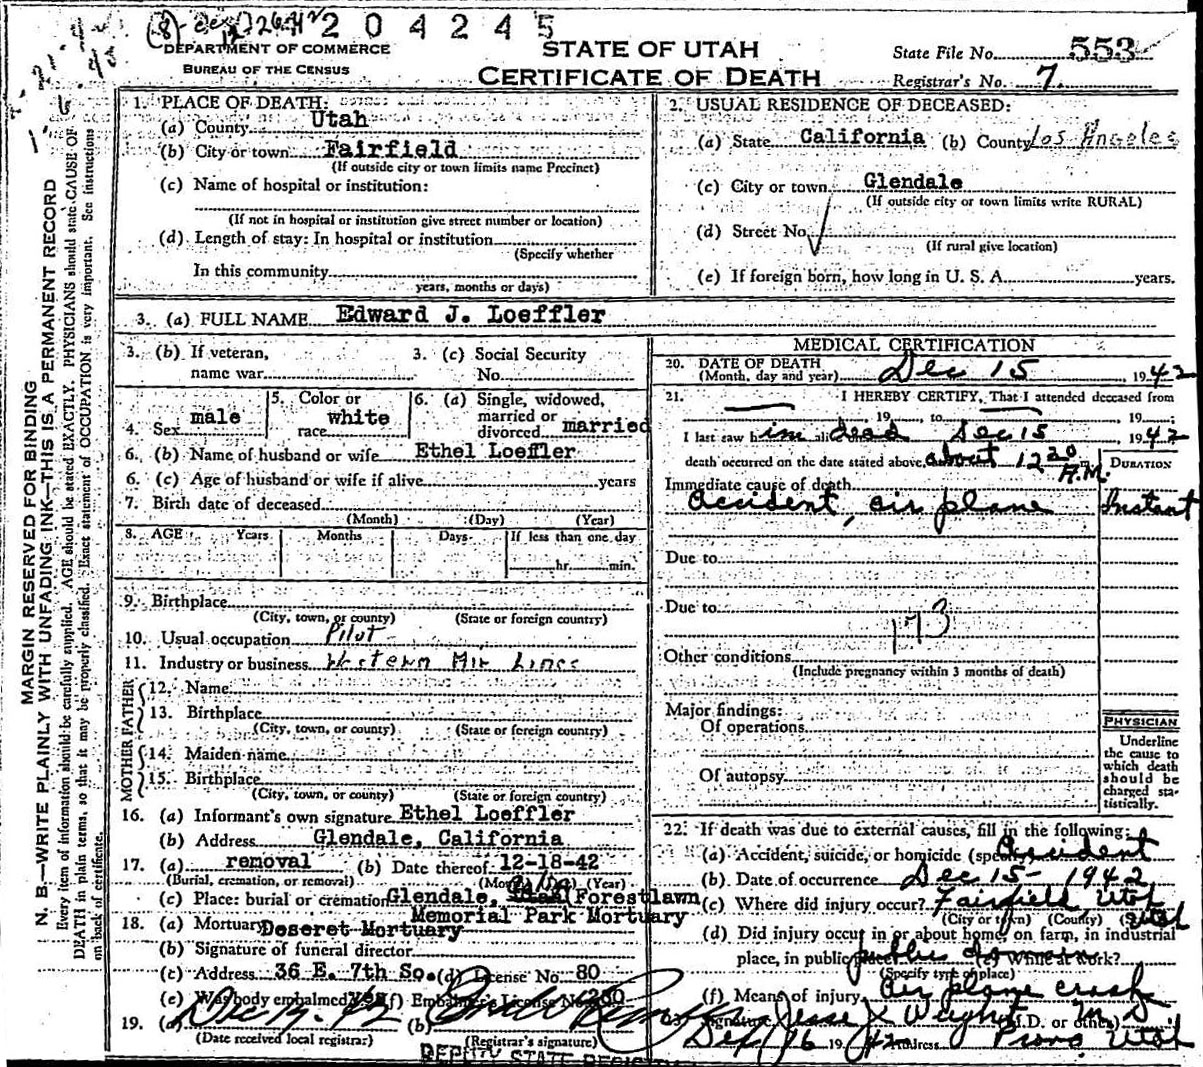 204245
DEPARTMENT OF COMMERCE
BUREAU OF THE CENSUS
STATE OF UTAH
CERTIFICATE OF DEATH
State File No. 553
Registrar's No. 7
MARGIN RESERVED FOR BINDING
N. B.—WRITE PLAINLY WITH UNFADING INK—THIS IS A PERMANENT RECORD
Every item of information should be carefully supplied. AGE should be stated EXACTLY. PHYSICIANS should state CAUSE OF
DEATH in plain terms, so that it may be properly classified. Exact statement of OCCUPATION is very important. See instructions
on back of certificate.
1. PLACE OF DEATH:
(a) County Utah
(b) City or town Fairfield
(If outside city or town limits name Precinct)
(c) Name of hospital or institution:
(If not in hospital or institution give street number or location)
(d) Length of stay: In hospital or institution
(Specify whether
In this community
years, months or days)
2. USUAL RESIDENCE OF DECEASED:
(a) State California (b) County Los Angeles
(c) City or town Glendale
(If outside city or town limits write RURAL)
(d) Street No.
(If rural give location)
(e) If foreign born, how long in U. S. A. years.
3. (a) FULL NAME Edward J. Loeffler
3. (b) If veteran, 3. (c) Social Security
name war No.
4. Sex male 5. Color or race white 6. (a) Single, widowed, married or divorced married
6. (b) Name of husband or wife Ethel Loeffler
6. (c) Age of husband or wife if alive years
7. Birth date of deceased
(Month) (Day) (Year)
8. AGE Years Months Days If less than one day
hr. min.
9. Birthplace
(City, town, or county) (State or foreign country)
10. Usual occupation Pilot
11. Industry or business Western Air Lines
FATHER
12. Name
13. Birthplace
(City, town, or county) (State or foreign country)
MOTHER
14. Maiden name
15. Birthplace
(City, town, or county) (State or foreign country)
16. (a) Informant's own signature Ethel Loeffler
(b) Address Glendale, California
17. (a) removal (b) Date thereof 12-18-42
(Burial, cremation, or removal) (Mo) (Day) (Year)
(c) Place: burial or cremation Glendale, Utah Forestlawn
Memorial Park Mortuary
18. (a) Mortuary Deseret Mortuary
(b) Signature of funeral director
(c) Address 36 E. 7th So. (d) License No. 80
(e) Was body embalmed yes (f) Embalmer's License No.
19. (a) Dec 17. 42 (b)
(Date received local registrar) (Registrar's signature)
DEPUTY STATE
MEDICAL CERTIFICATION
20. DATE OF DEATH
(Month, day and year) Dec 15 1942
21. I HEREBY CERTIFY, That I attended deceased from
19 to 19
I last saw him dead Dec 15 1942
death occurred on the date stated above, about 12 20 A.M. DURATION
Immediate cause of death
accident, air plane Instant
Due to
Due to
173
Other conditions
(Include pregnancy within 3 months of death)
Major findings:
Of operations
Of autopsy
PHYSICIAN
Underline
the cause to
which death
should be
charged sta-
tistically.
22. If death was due to external causes, fill in the following:
(a) Accident, suicide, or homicide (specify) accident
(b) Date of occurrence Dec 15-1942
(c) Where did injury occur? Fairfield, Utah Utah
(City or town) (County) (State)
(d) Did injury occur in or about home, on farm, in industrial
place, in public public domain (e) While at work?
(Specify type of place)
(f) Means of injury air plane crash
23. Signature Jesse J. Weight M.D.
(M.D. or other)
Dec 16 1942 Address Provo, Utah